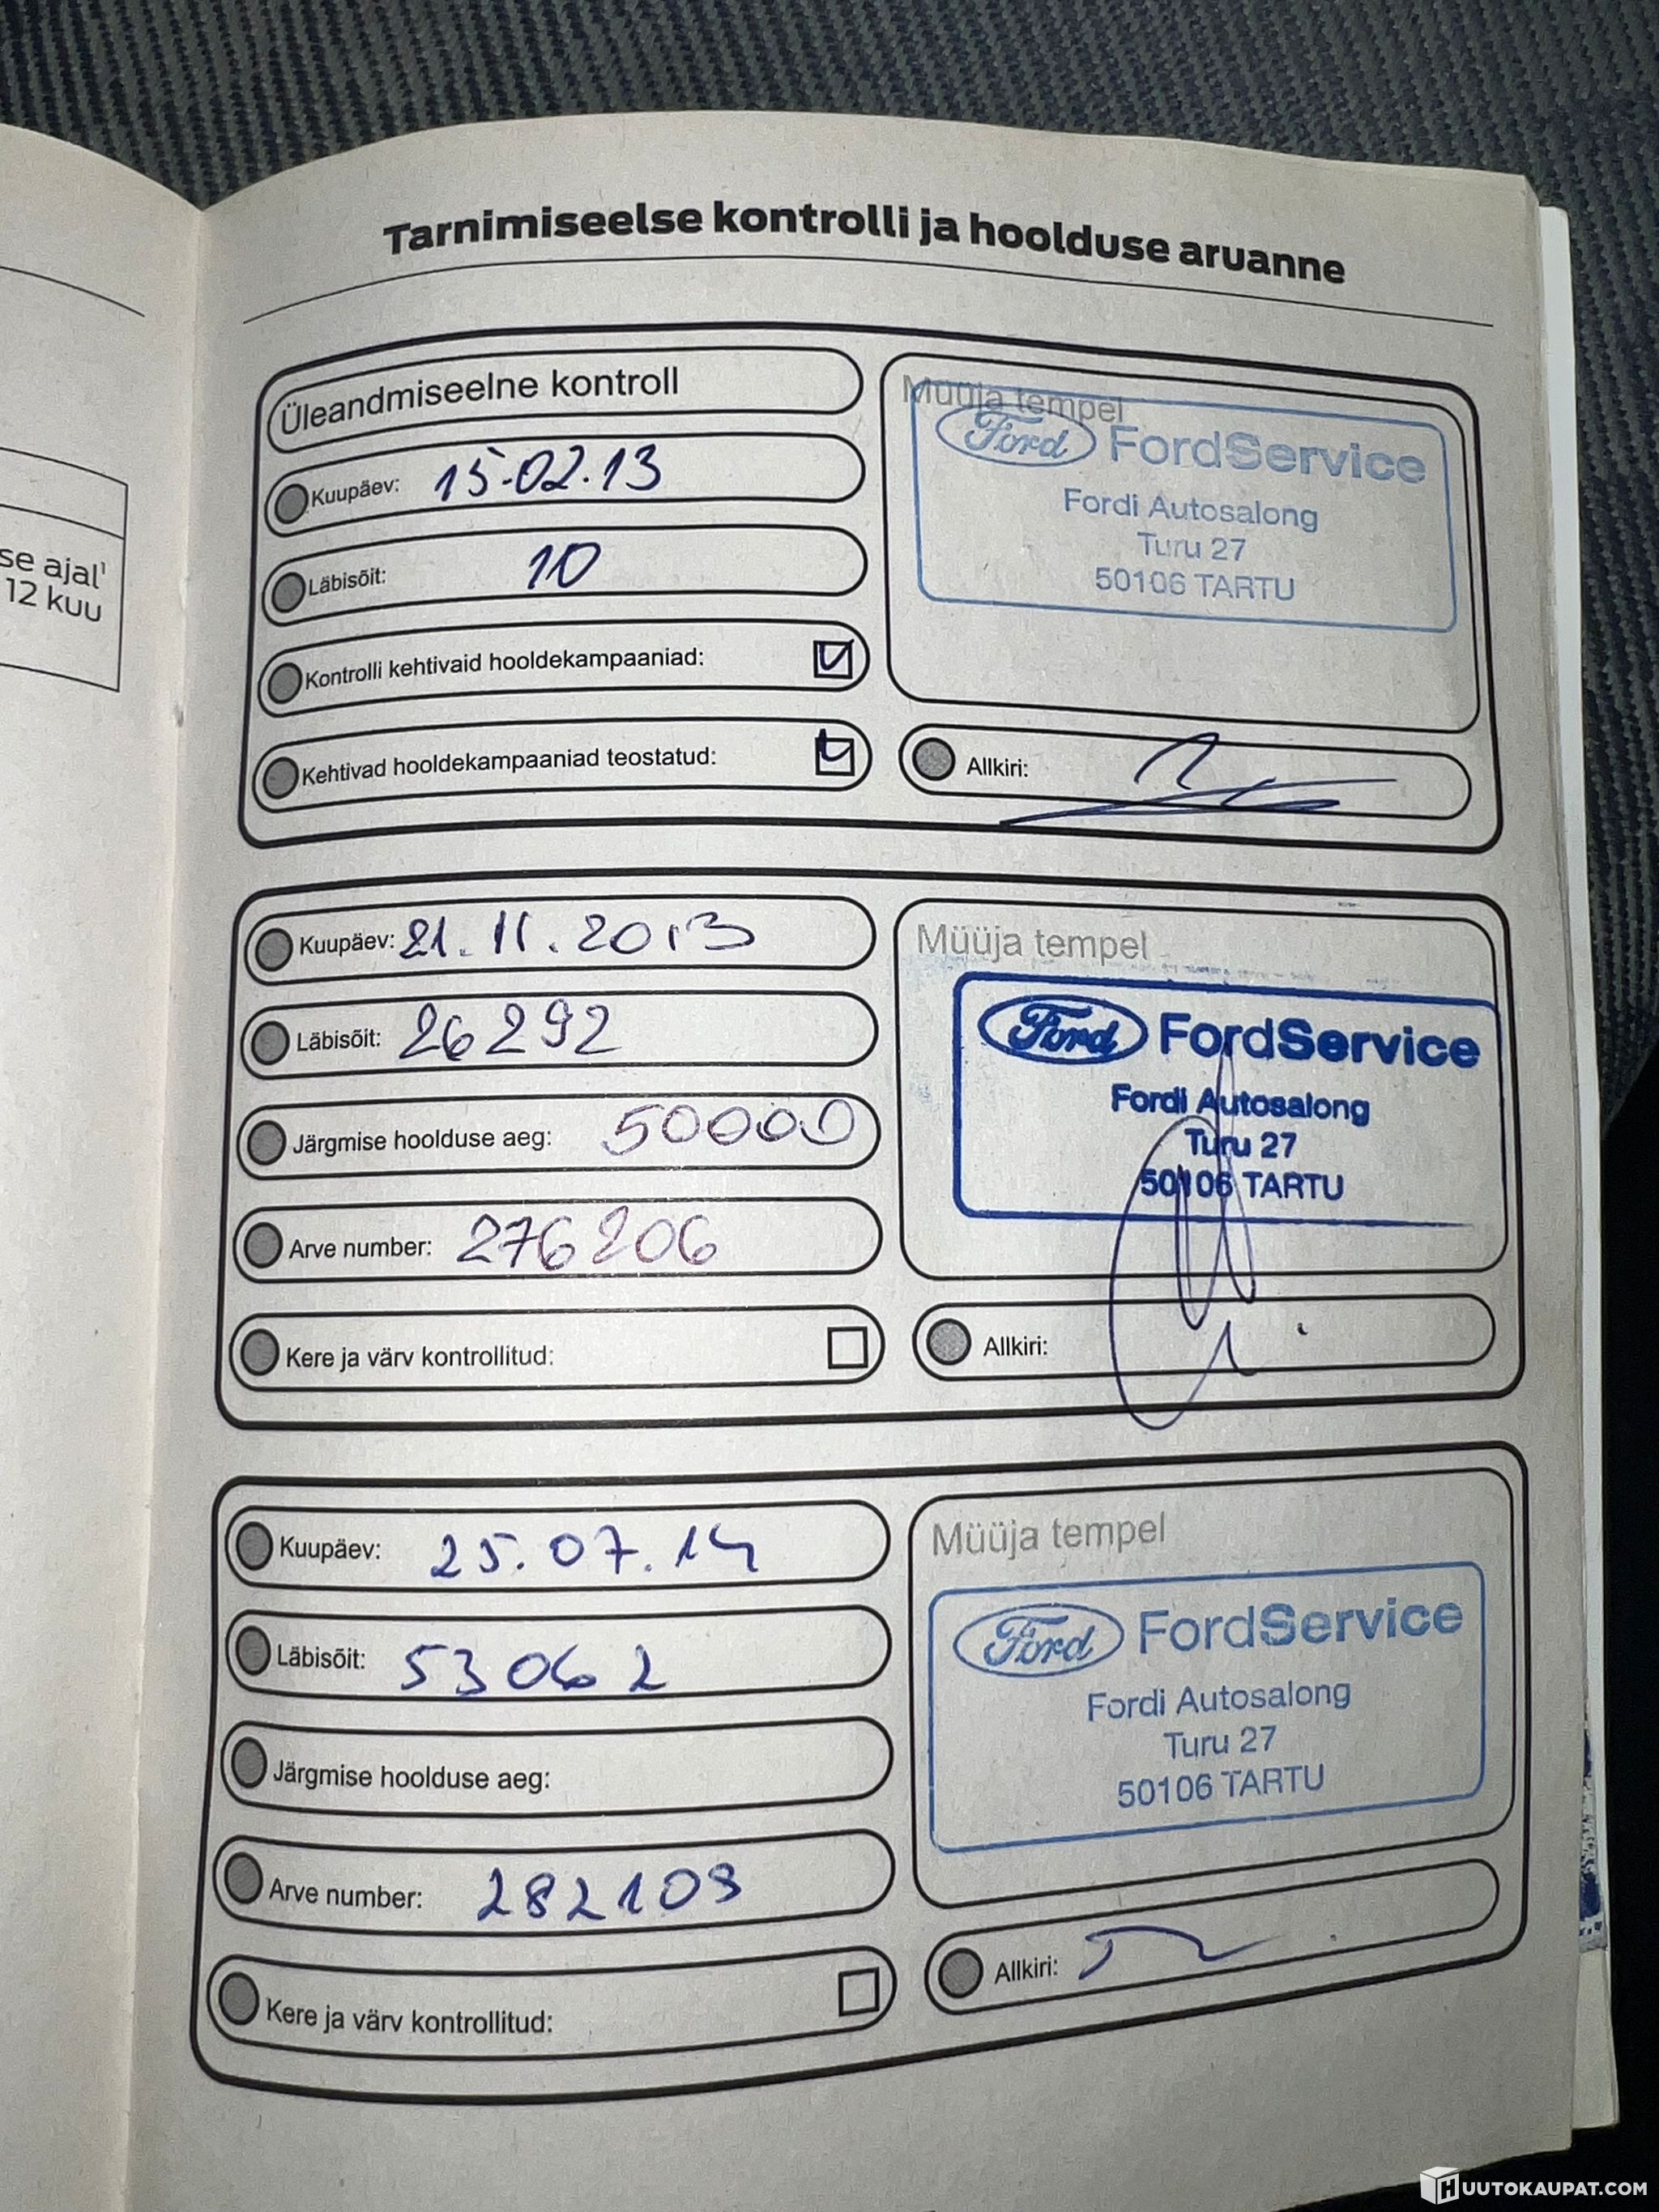 se ajal¹
12 kuu
Tarnimiseelse kontrolli ja hoolduse aruanne
Üleandmiseelne kontroll
Kuupäev: 15.02.13
Läbisõit: 10
Kontrolli kehtivaid hooldekampaaniad:
Kehtivad hooldekampaaniad teostatud:
Müüja tempel
Ford FordService
Fordi Autosalong
Turu 27
50106 TARTU
Allkiri:
Kuupäev: 21.11.2013
Läbisõit: 26292
Järgmise hoolduse aeg: 50000
Arve number: 276206
Kere ja värv kontrollitud:
Müüja tempel
Ford FordService
Fordi Autosalong
Turu 27
50106 TARTU
Allkiri:
Kuupäev: 25.07.14
Läbisõit: 53062
Järgmise hoolduse aeg:
Arve number: 282109
Kere ja värv kontrollitud:
Müüja tempel
Ford FordService
Fordi Autosalong
Turu 27
50106 TARTU
Allkiri:
HUUTOKAUPAT.COM